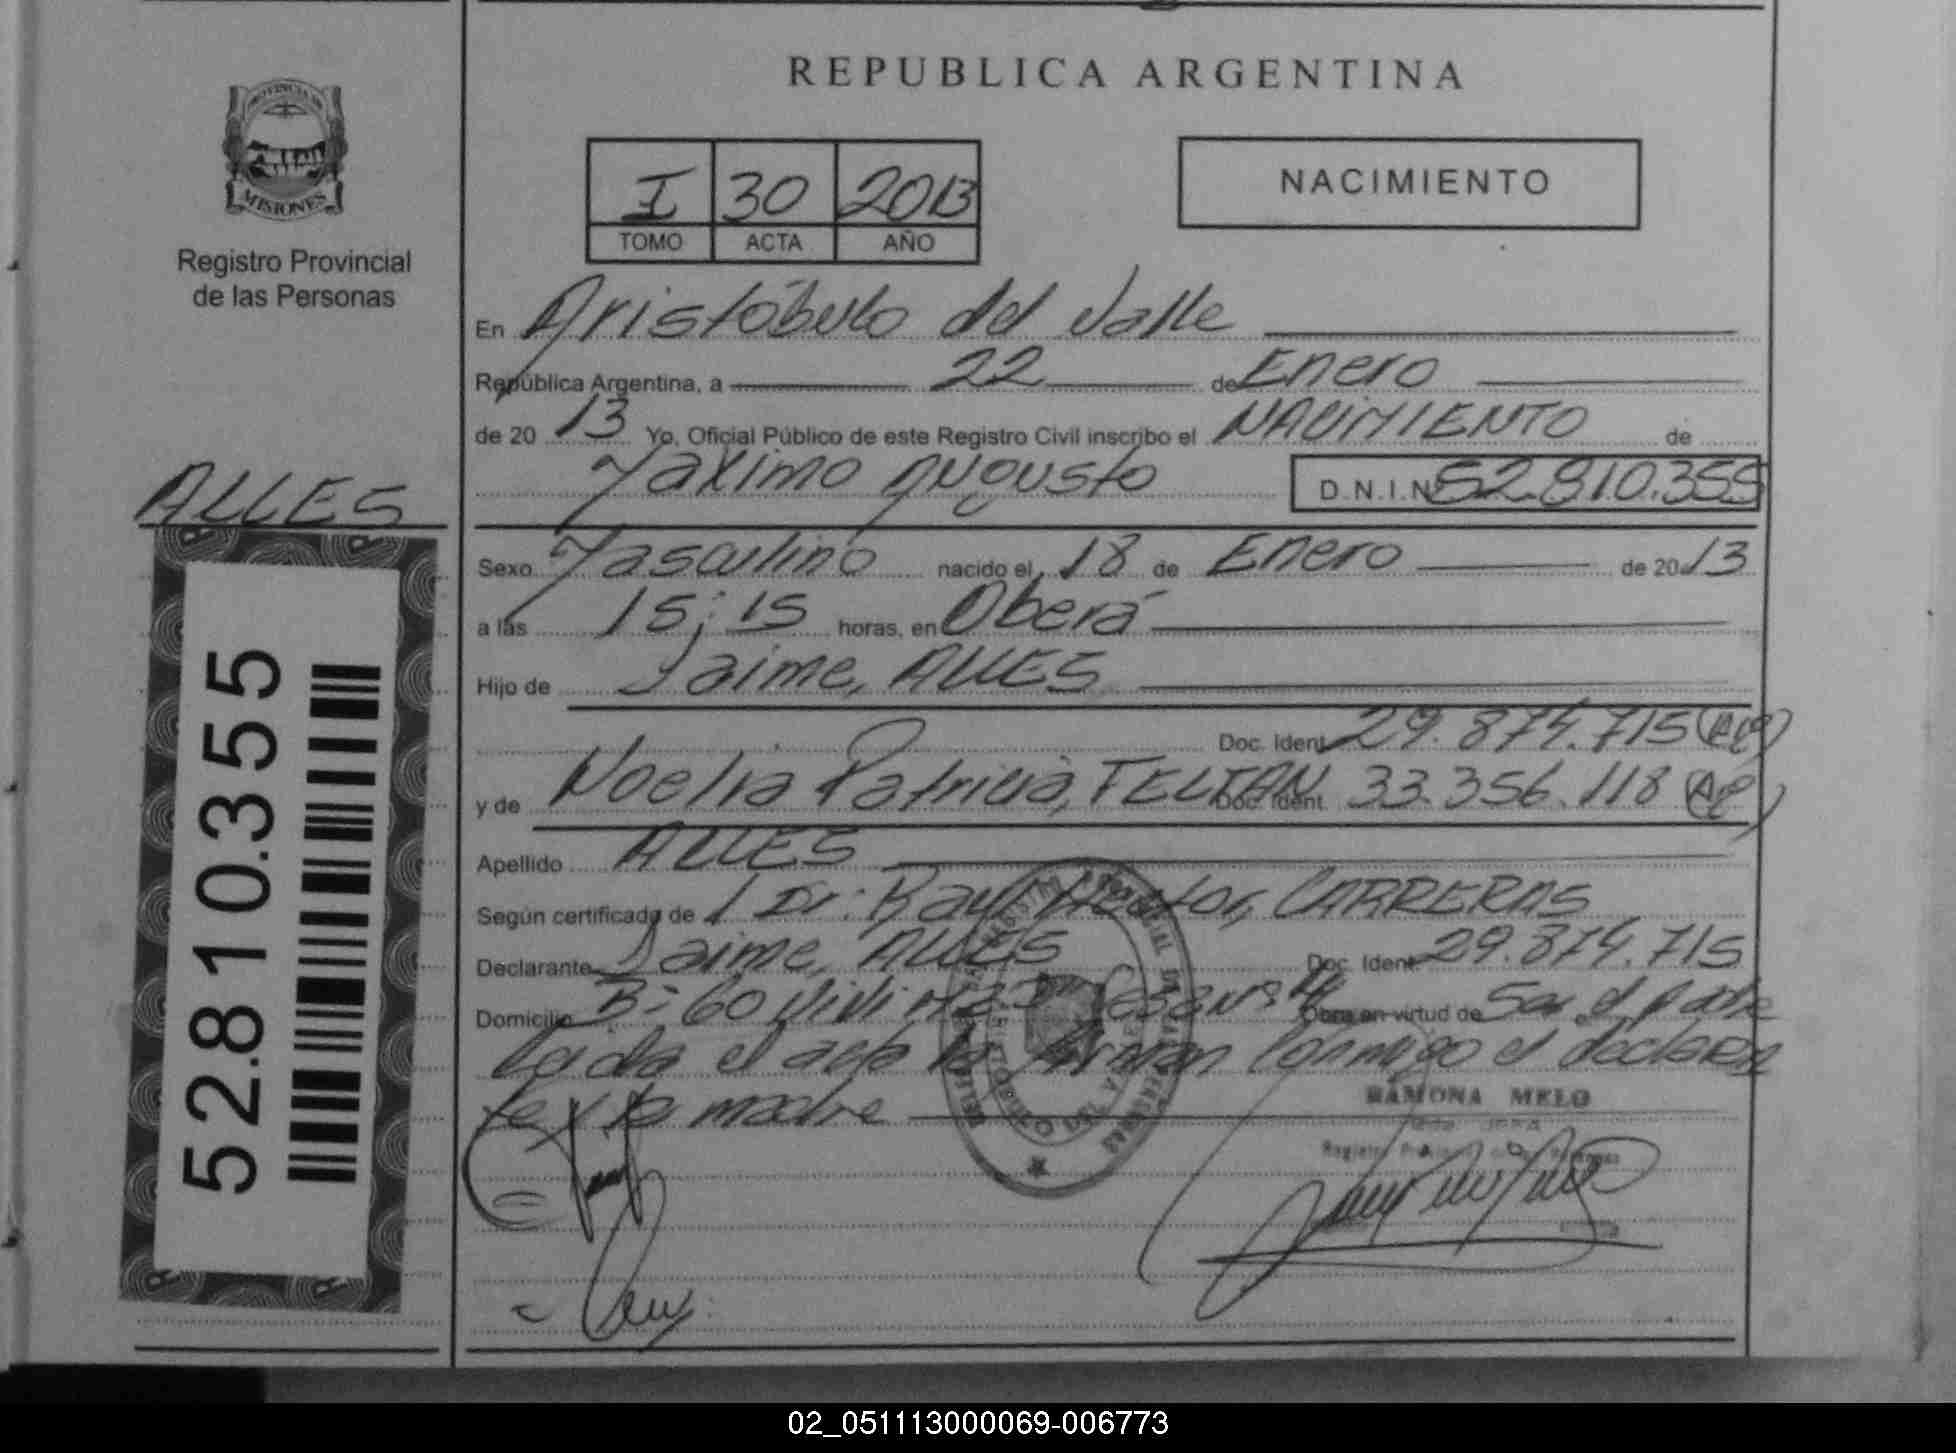 REPUBLICA ARGENTINA
PROVINCIA DE
MISIONES
Registro Provincial
de las Personas
I 30 2013
TOMO ACTA AÑO
NACIMIENTO
En Aristóbulo del Valle
República Argentina, a 22 de Enero
de 20 13 Yo, Oficial Público de este Registro Civil inscribo el NACIMIENTO de
Máximo Augusto D.N.I.Nº 52.810.355
ALLES
Sexo Masculino nacido el 18 de Enero de 20 13
a las 15:15 horas, en Oberá
Hijo de Jaime, ALLES
Doc. Ident. 29.874.715 (Ar)
y de Noelia Patricia, Doc. Ident. 33.356.118 (Ar)
Apellido ALLES
Según certificado de Dr. Raul Hector, CARRERAS
Declarante Jaime, ALLES Doc. Ident. 29.874.715
Domicilio Bº 60 Viviendas Casa Nº 4 Obra en virtud de Ser el padre
Leida el acta la firman conmigo el declaran
te y la madre
RAMONA MELO
52.810.355
02_051113000069-006773